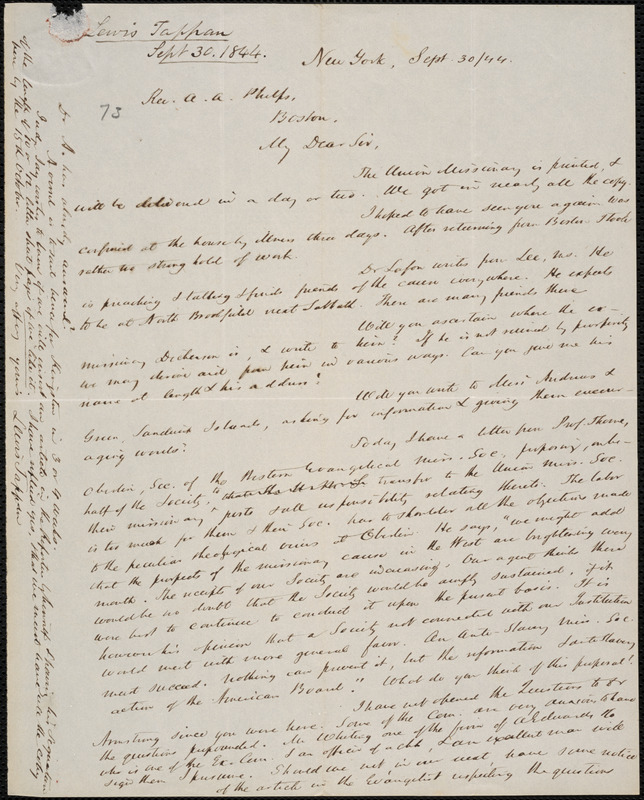 Lewis Tappan
Sept 30. 1844.
New York, Sept. 30/44
73
Rev. A. A. Phelps,
Boston.
My Dear Sir,
The Union Missionary is printed, &
will be delivered in a day or two. We got in nearly all the copy.
I hoped to have seen you again. Was
confined at the house by illness three days. After returning from Boston I took
rather too strong hold of work.
Dr Lafon writes from Lee, Ms. He
is preaching & talking & finds friends of the cause everywhere. He expects
to be at North Brookfield next Sabbath. There are many friends there
Will you ascertain where the ex-
missionary Dickerson is, & write to him? If he is not ruined by prosperity
we may derive aid from him in various ways. Can you give me his
name at length & his address?
Will you write to Messrs Andrews &
Green, Sandwich Islands, asking for information & giving them encour-
aging words?
Today I have a letter from Prof. Thome,
Oberlin, Sec. of the Western Evangelical Miss. Soc. proposing, on be-
half of the Society, to transfer to the Union Miss. Soc.
their missionary posts & all responsibility relating thereto. The labor
is too much for them & their Soc. has to shoulder all the objections made
to the peculiar theological views at Oberlin. He says, "we might add
that the prospects of the missionary cause in the West are brightening every
month. The receipts of our Society are increasing. Our agent thinks there
would be no doubt that the Society would be amply sustained, if it
were best to continue to conduct it upon the present basis. It is
however his opinion that a Society not connected with our Institution
would meet with more general favor. An Anti-Slavery Miss. Soc.
must succeed. Nothing can prevent it, but the reformation & antislavery
action of the American Board." What do you think of this proposal?
I have not opened the Questions to Dr
Armstrong since you were here. Some of the Com. are very anxious to have
the questions propounded. Mr Whiting one of the firm of
who is one of the Ex. Com. & an officer of a chh, & an excellent man will
sign them I presume. Should we not in our next, have some notice
of the article in the Evangelist respecting the questions
Dr. A. has already answered?
A vessel is to sail hence for Kingston in 3 or 4 weeks.
hen by the 15th October. Very affy yours Lewis Tappan